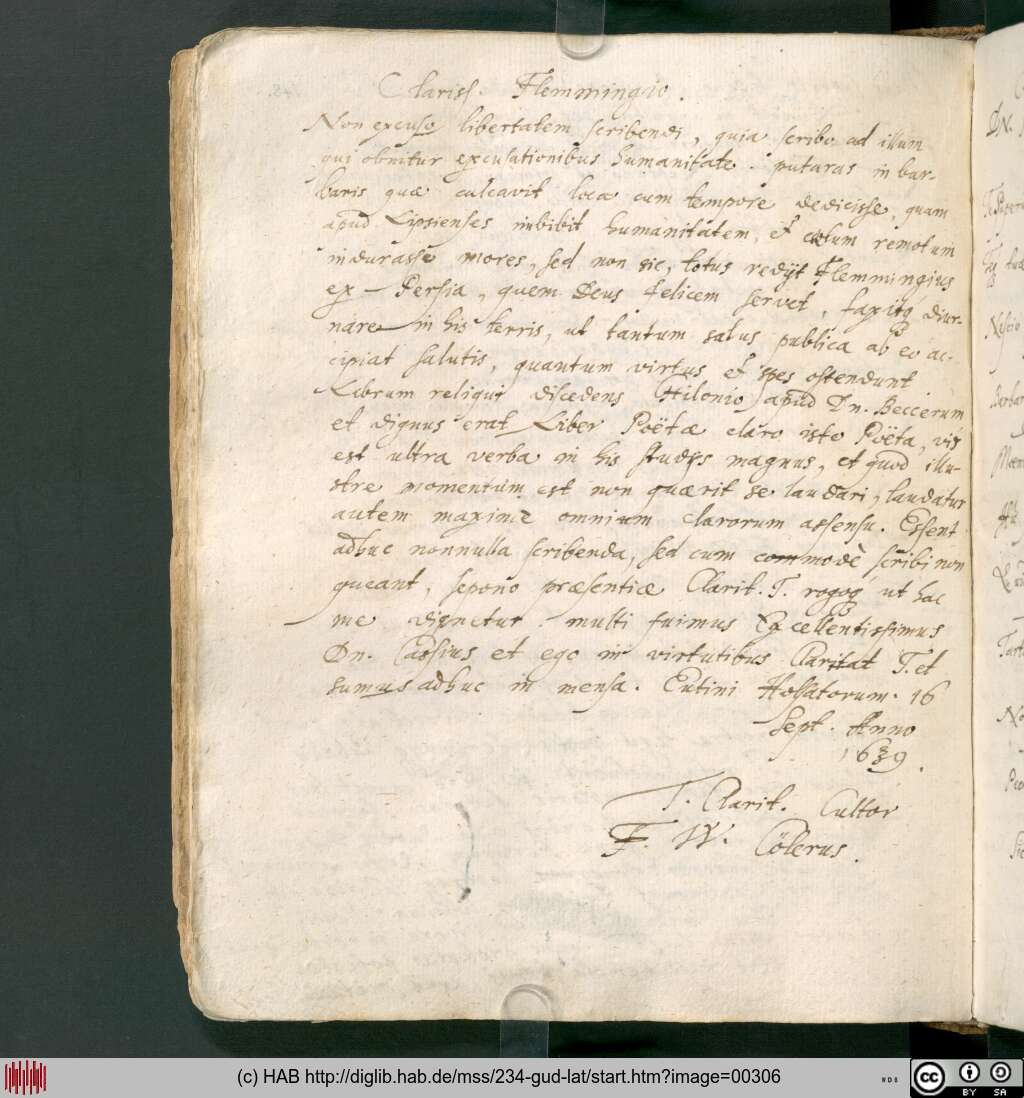 Clariss. Flemmingio.
Non excuso libertatem scribendi, quia scribo ad illum
qui obnitur excusationibus humanitate. putaras in bar-
baris quæ culcavit loca cum tempore dedicisse, quam
apud Lipsienses imbibit humanitatem, et cœlum remotum
indurasse mores, sed non sic, totus redijt Flemmingius
ex Persia, quem Deus felicem servet, faxitq₃ diur-
nare in his terris, ut tantum salus publica ab eo ac-
cipiat salutis, quantum virtus et spes ostendunt
Librum reliqui discedens Hilonio apud Dn. Beccerum
et dignus erat Liber Poëtæ claro isto Poëta, vis
est ultra verba in his studijs magnus, et quod illu-
stre momentum est non quærit se laudari, laudatur
autem maxime omnium clarorum assensu. Essent
adhuc nonnulla scribenda, sed cum commodè scribi non
queant, sepono præsentiæ Clarit. T. rogoq₃ ut hac
me dignetur. multi fuimus Excellentissimus
Dn. Cassius et ego in virtutibus Claritat T. et
sumus adhuc in mensa. Eutini Holsatorum. 16
Sept. Anno
1639.
T. Clarit. Cultor
F. W. Cölerus.
DN.
(c) HAB http://diglib.hab.de/mss/234-gud-lat/start.htm?image=00306
WDB
cc
BY SA